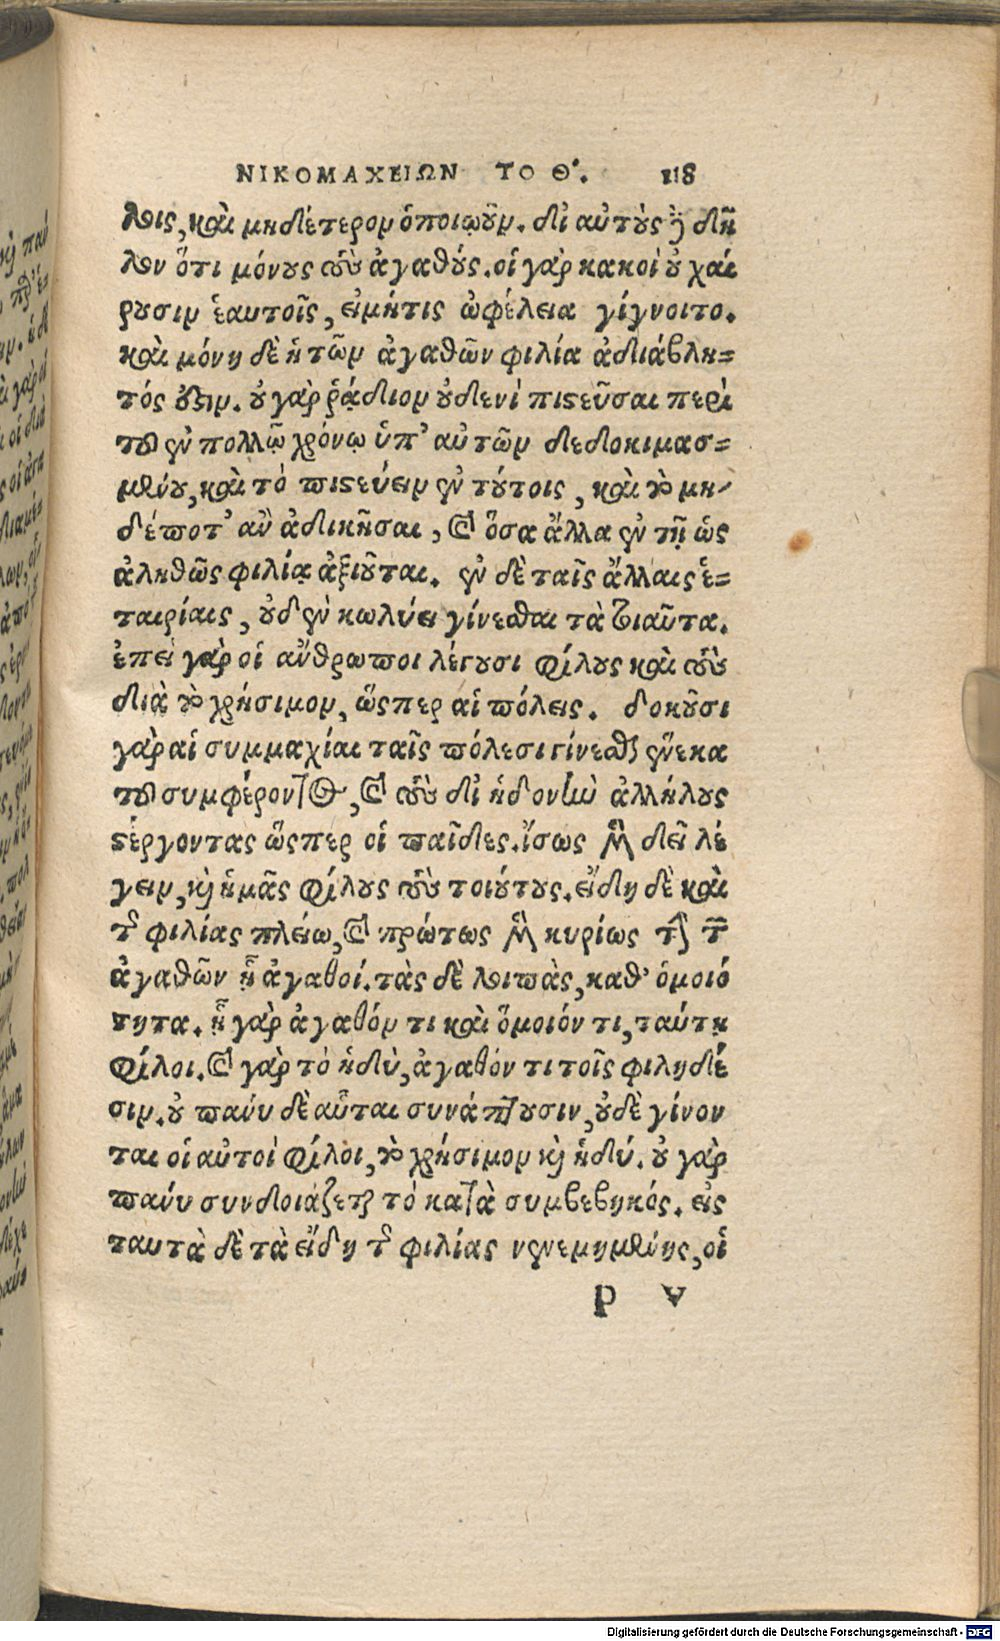 ΝΙΚΟΜΑΧΕΙΩΝ ΤΟ Θ'. 118
λοις, καὶ μηδέτερον ὁποιῳοῦν. δι αὐτοὺς ϳ δῆ
λον ὅτι μόνους τοὺς ἀγαθούς. οἱ γὰρ κακοὶ οὐ χαί
ρουσιν ἑαυτοῖς, εἰμήτις ὠφέλεια γίγνοιτο.
καὶ μόνη δὲ ἡ τῶν ἀγαθῶν φιλία ἀδιάβλη=
τός ἐστιν. οὐ γὰρ ῥᾴδιον οὐδενὶ πιστεῦσαι περὶ
τοῦ ἐν πολλῷ χρόνῳ ὑπ' αὐτῶν δεδοκιμασ=
μένου, καὶ τὸ πιστεύειν ἐν τούτοις, καὶ τὸ μη-
δέποτ' ἂν ἀδικῆσαι, καὶ ὅσα ἄλλα ἐν τῇ ὡς
ἀληθῶς φιλίᾳ ἀξιοῦται. ἐν δὲ ταῖς ἄλλαις ἑ=
ταιρίαις, οὐδὲν κωλύει γίνεσθαι τὰ τοιαῦτα.
ἐπεὶ γὰρ οἱ ἄνθρωποι λέγουσι φίλους καὶ τοὺς
διὰ τὸ χρήσιμον, ὥσπερ αἱ πόλεις. δοκοῦσι
γὰρ αἱ συμμαχίαι ταῖς πόλεσι γίνεσθαι ἕνεκα
τοῦ συμφέροντος, καὶ τοὺς δι ἡδονὴν ἀλλήλους
στέργοντας ὥσπερ οἱ παῖδες. ἴσως μὲν δεῖ λέ
γειν, καὶ ἡμᾶς φίλους τοὺς τοιούτους. εἴδη δὲ καὶ
τῆς φιλίας πλείω, καὶ πρώτως μὲν κυρίως τὴν τῶν
ἀγαθῶν ᾗ ἀγαθοί. τὰς δὲ λοιπὰς, καθ' ὁμοιό
τητα. ᾗ γὰρ ἀγαθόν τι καὶ ὅμοιόν τι, ταύτῃ
φίλοι. καὶ γὰρ τὸ ἡδὺ, ἀγαθόν τι τοῖς φιληδέ
σιν. οὐ πανύ δὲ αὗται συνάπτουσιν, οὐδὲ γίνον
ται οἱ αὐτοὶ φίλοι, τὸ χρήσιμον καὶ ἡδύ. οὐ γὰρ
πανύ συνδοιάζεται τὸ κατὰ συμβεβηκός. εἰς
ταυτὰ δὲ τὰ εἴδη τῆς φιλίας νενεμημένης, οἱ
p v
Digitalisierung gefördert durch die Deutsche Forschungsgemeinschaft - DFG